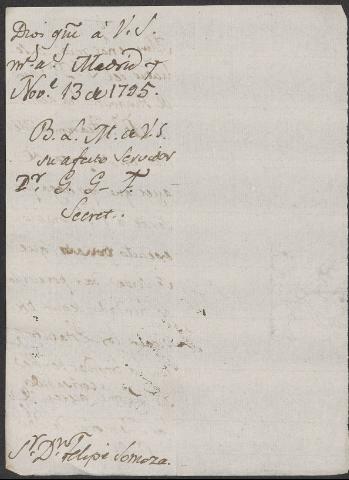 Dios gue á V. S.
ms. as. Madrid y
Nove. 13 de 1795.
B. L. M. de V. S.
su afecto Servidor
Dr. G. G. F.
Secret..
Sr. Dn. Felipe Somoza.